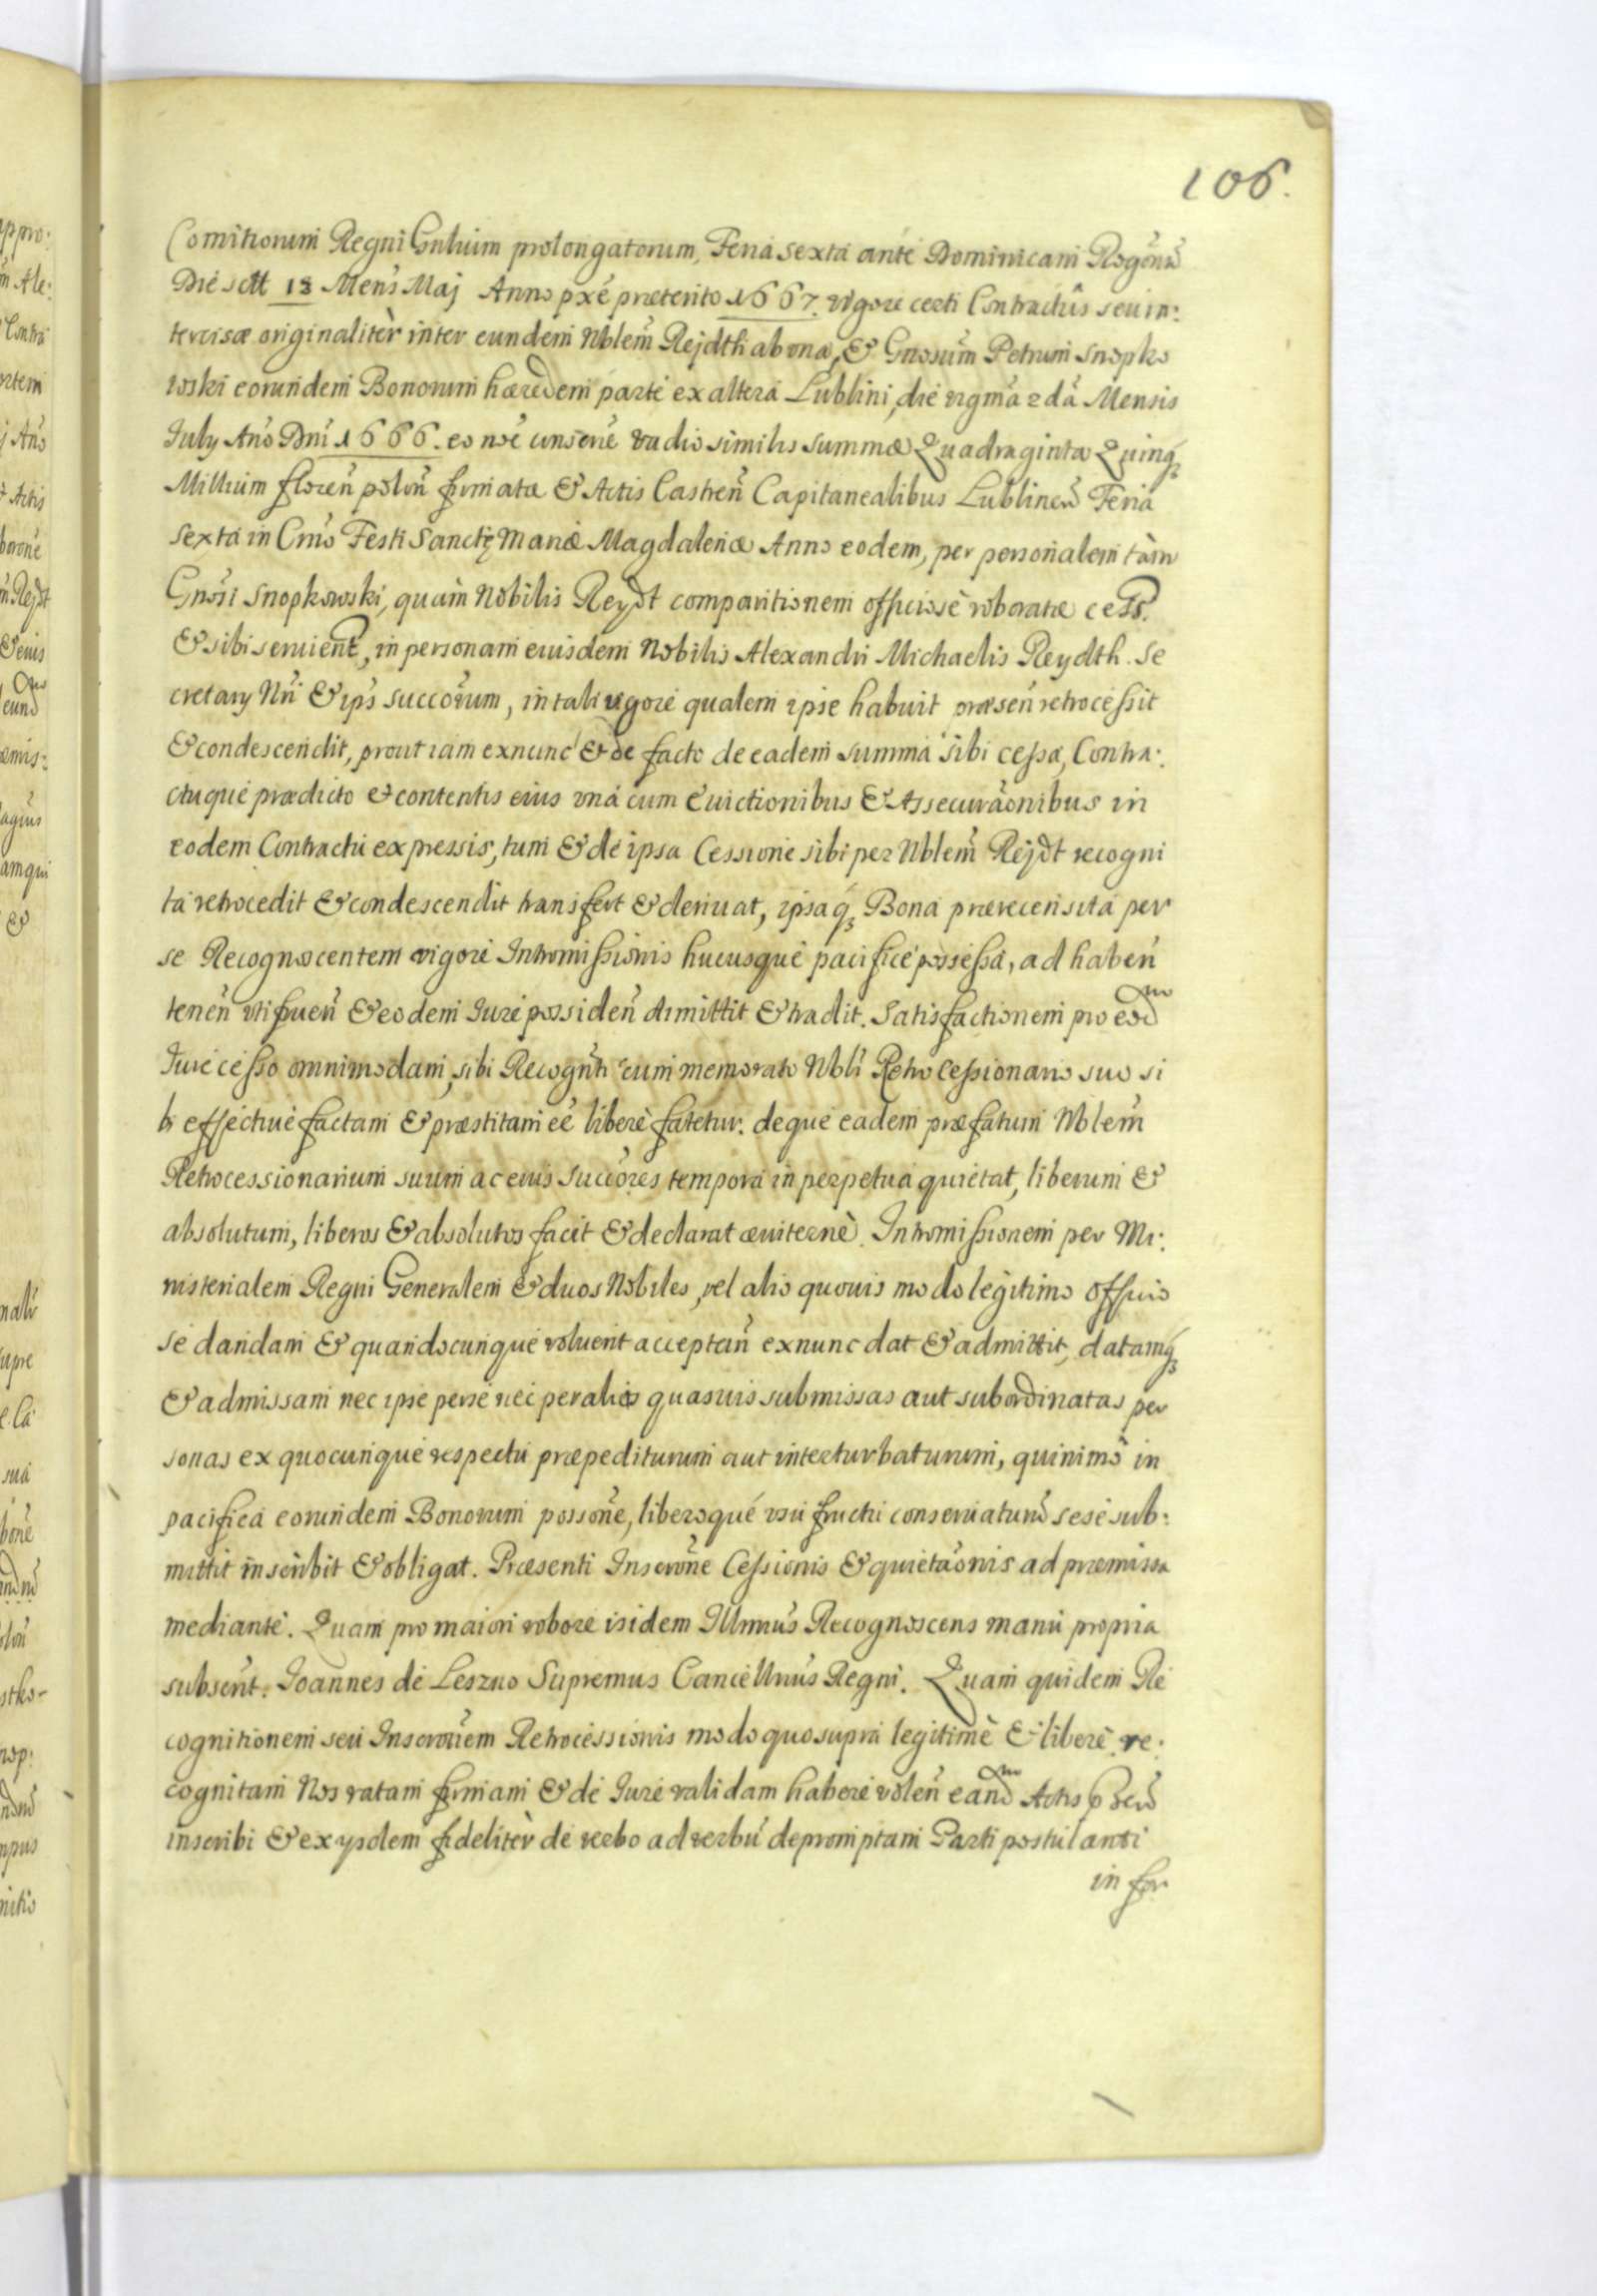 106.
Comitiorum Regni Gnlium prolongatorum, Feria sexta ante Dominicam Rogõnũ
Die sctt 13 Mens̃ Maj Anno pxé præterito 1667. vigore certi Contractûs seu in:
tercisæ originalitèr inter eundem Nblem̃ Rejdth ab vna, & Gnosum̃ Petrum Snopko
wski eorundem Bonorum hæredem parte ex altera Lublini, die vigm̃a 2da Mensis
July Ano Dni 1666. eo nõe conscrië vadio similis summæ Quadraginta Quinq̃
Millium floren̄ polon̄ firmatæ & Actis Castren̄ Capitanealibus Lublinen̄ Feria
sexta in Cr̃no Festi Sanctę Mariæ Magdalenæ Anno eodem, per personalem tàm
Gnosi Snopkowski, quàm Nobilis Reydt comparitionem officiosè roboratæ
& sibi seruien̄, in personam eiusdem Nobilis Alexandri Michaelis Reydth. Se
cretary Nr̃i & ips̃ succõrum, in tali vigore qualem ipse habuit præsen̄ retrocessit
& condescendit, prout iam exnunc & de facto de eadem summa sibi cessa, Contra:
ctuque prædicto et contentis eius vnà cum Euictionibus & Assecuraõnibus in
eodem Contractu expressis, tum & de ipsa Cessione sibi per Nblem̃ Rejdt recogni
ta retrocedit & condescendit transfert & deriuat, ipsaq̃ Bona prærecensita per
se Recognoscentem vigore Intromissionis hucusque pacifice possessa, ad haben̄
tenen̄ vtifruen̄ & eodem Iure possiden̄ dimittit & tradit. Satisfactionem pro eod
Iure cesso omnimodam, sibi Recogn̄ti cum memorato Nbli Retrocessionario suo si
bi effectiue factam & præstitam eẽ liberè fatetur. deque eadem præfatum Nblem̃
Retrocessionarium suum ac eius Succõres tempora in perpetua quietat, liberum &
absolutum, liberos & absolutos facit & declarat æuiternè. Intromissionem per Mi:
nisterialem Regni Generalem & duos Nobiles, vel alio quouis modo legitimo officio
se dandam & quandocunque voluerit acceptan̄ exnunc dat & admittit, datamq̃
& admissam nec ipse per se nec per alias quasuis submissas aut subordinatas per
sonas ex quocunque respectu præpediturum aut interturbaturum, quinimo in
pacifica eorundem Bonorum possoñe, liberoque vsu fructu conseruaturũ sese sub:
mittit inscribit & obligat. Præsenti Inscroñe Cessionis & quietaõnis ad præmissa
mediante. Quam pro maiori robore isidem Illmus̃ Recognoscens manu propria
subscrit̃. Ioannes de Leszno Supremus Cancellrius̃ Regni. Quam quidem Re
cognitionem seu Inscroñem Retrocessionis modo quo supra legitimè & liberè re:
cognitam Nos ratam firmam & de Iure validam habere volen̄ eand Actis
inscribi & ex ysdem fidelitèr de verbo ad verbũ depromptam Parti postulanti
in for